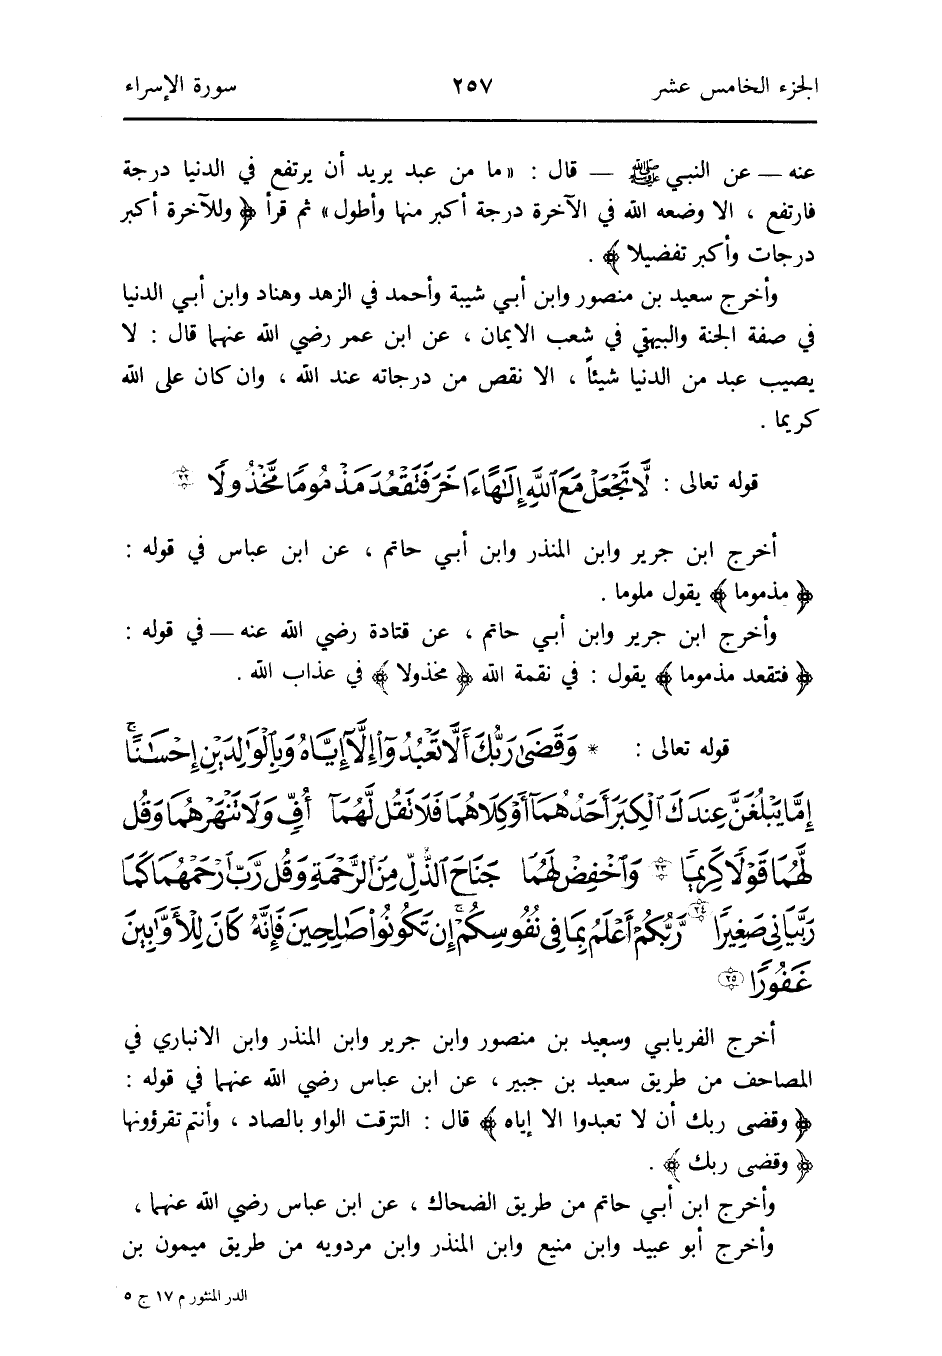 الجزء الخامس عشر ٢٥٧ سورة الإسراء
عنه — عن النبي ﷺ — قال : « ما من عبد يريد أن يرتفع في الدنيا درجة
فارتفع ، الا وضعه الله في الآخرة درجة أكبر منها وأطول» ثم قرأ ﴿ وللآخرة أكبر
درجات وأكبر تفضيلا ﴾ .
وأخرج سعيد بن منصور وابن أبي شيبة وأحمد في الزهد وهناد وابن أبي الدنيا
في صفة الجنة والبيهقي في شعب الايمان ، عن ابن عمر رضي الله عنهما قال : لا
يصيب عبد من الدنيا شيئاً ، الا نقص من درجاته عند الله ، وان كان على الله
كريما .
قوله تعالى : لَّا تَجْعَلْ مَعَ ٱللَّهِ إِلَٰهًا ءَاخَرَ فَتَقْعُدَ مَذْمُومًا مَّخْذُولًا ٢٢
أخرج ابن جرير وابن المنذر وابن أبي حاتم ، عن ابن عباس في قوله :
﴿ مذموما ﴾ يقول ملوما .
وأخرج ابن جرير وابن أبي حاتم ، عن قتادة رضي الله عنه — في قوله :
﴿ فتقعد مذموما ﴾ يقول : في نقمة الله ﴿ مخذولا ﴾ في عذاب الله .
قوله تعالى : * وَقَضَىٰ رَبُّكَ أَلَّا تَعْبُدُوٓا۟ إِلَّآ إِيَّاهُ وَبِٱلْوَٰلِدَيْنِ إِحْسَٰنًا ۚ
إِمَّا يَبْلُغَنَّ عِندَكَ ٱلْكِبَرَ أَحَدُهُمَآ أَوْ كِلَاهُمَا فَلَا تَقُل لَّهُمَآ أُفٍّ وَلَا تَنْهَرْهُمَا وَقُل
لَّهُمَا قَوْلًا كَرِيمًا ٢٣ وَٱخْفِضْ لَهُمَا جَنَاحَ ٱلذُّلِّ مِنَ ٱلرَّحْمَةِ وَقُل رَّبِّ ٱرْحَمْهُمَا كَمَا
رَبَّيَانِى صَغِيرًا ٢٤ رَّبُّكُمْ أَعْلَمُ بِمَا فِى نُفُوسِكُمْ ۚ إِن تَكُونُوا۟ صَٰلِحِينَ فَإِنَّهُۥ كَانَ لِلْأَوَّٰبِينَ
غَفُورًا ٢٥
أخرج الفريابي وسعيد بن منصور وابن جرير وابن المنذر وابن الانباري في
المصاحف من طريق سعيد بن جبير ، عن ابن عباس رضي الله عنهما في قوله :
﴿ وقضى ربك أن لا تعبدوا الا إياه ﴾ قال : التزقت الواو بالصاد ، وأنتم تقرؤونها
﴿ وقضى ربك ﴾ .
وأخرج ابن أبي حاتم من طريق الضحاك ، عن ابن عباس رضي الله عنهما ،
وأخرج أبو عبيد وابن منيع وابن المنذر وابن مردويه من طريق ميمون بن
الدر المنثور م ١٧ ج ٥